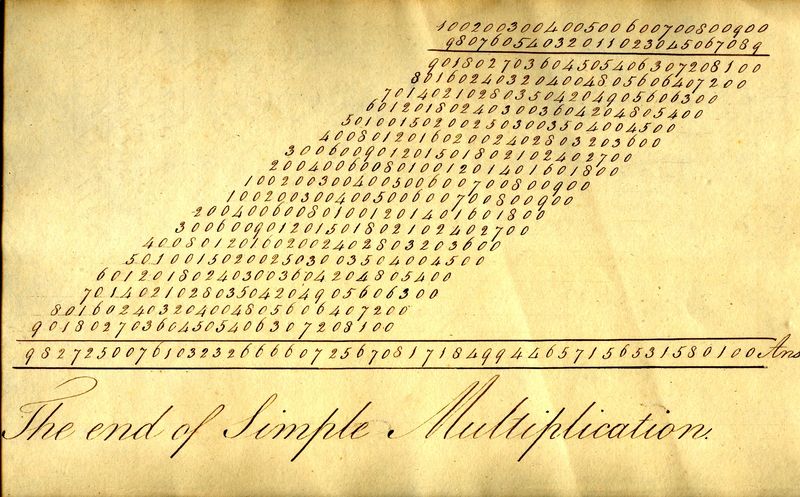 100200300400500600700800900
98076054032011023045067089
901802703604505406307208100
801602403204004805606407200
701402102803504204905606300
601201802403003604204805400
501001502002503003504004500
400801201602002402803203600
300600901201501802102402700
200400600801001201401601800
100200300400500600700800900
100200300400500600700800900
200400600801001201401601800
300600901201501802102402700
400801201602002402803203600
501001502002503003504004500
601201802403003604204805400
701402102803504204905606300
801602403204004805606407200
901802703604505406307208100
98272500761032326666607256708171849944657156531580100 Ans
The end of Simple Multiplication.